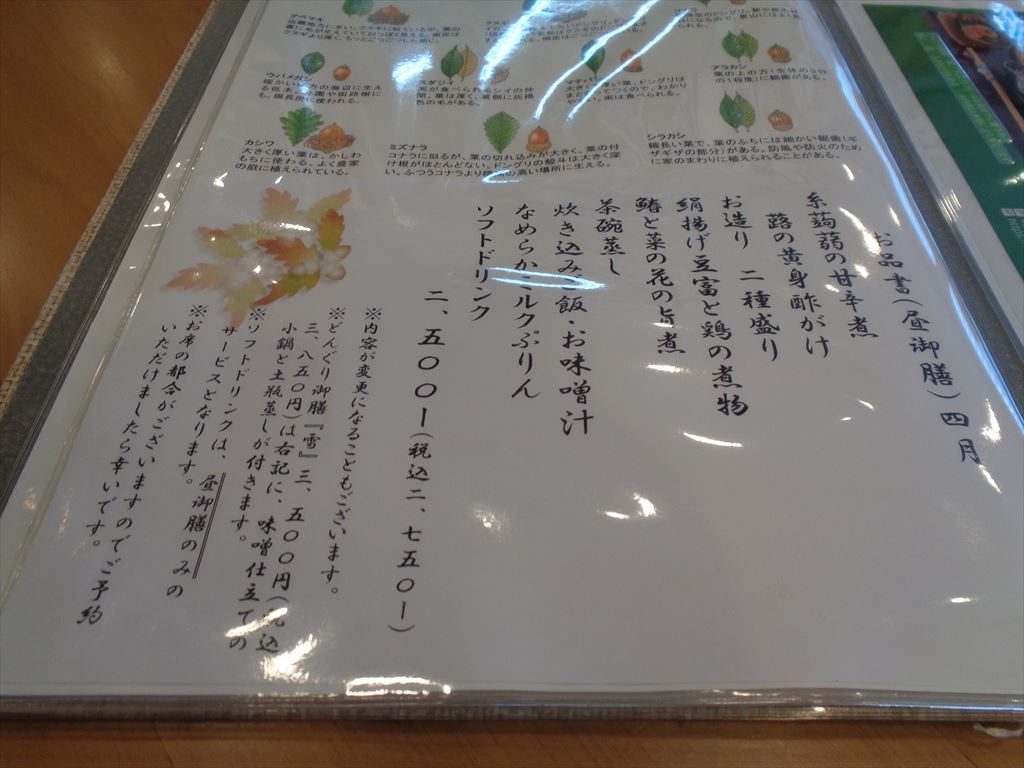 アベマキ
ウバメガシ
カシワ
大きく厚い葉は、かしわ
もちに使わる。よく農家
の庭に植えられている。
ミズナラ
コナラに似るが、葉の切れ込みが大きく、葉の付
アラカシ
葉の上の方(全体の3分
の1程度)に鋸歯がある。
シラカシ
細長い葉で、葉のふちには細かい鋸歯(ギ
ザギザの部分)がある。防風や防火のため
に家のまわりに植えられることがある。
お品書(昼御膳)四月
糸蒟蒻の甘辛煮
蕗の黄身酢がけ
お造り 二種盛り
絹揚げ豆富と鶏の煮物
鰆と菜の花の旨煮
茶碗蒸し
炊き込みご飯・お味噌汁
なめらかミルクぷりん
ソフトドリンク
二、五〇〇ー(税込二、七五〇ー)
※内容が変更になることもございます。
※どんぐり御膳『雪』三、五〇〇円(税込
三、八五〇円)は右記に、味噌仕立ての
小鍋と土瓶蒸しが付きます。
※ソフトドリンクは、昼御膳のみの
サービスとなります。
※お席の都合がございますのでご予約
いただけましたら幸いです。